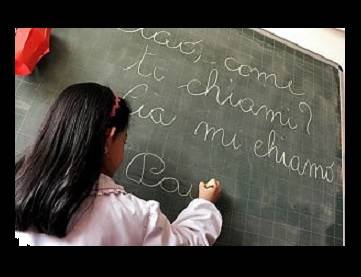 Ciao, come
ti chiami?
Lia mi chiamo
Pa